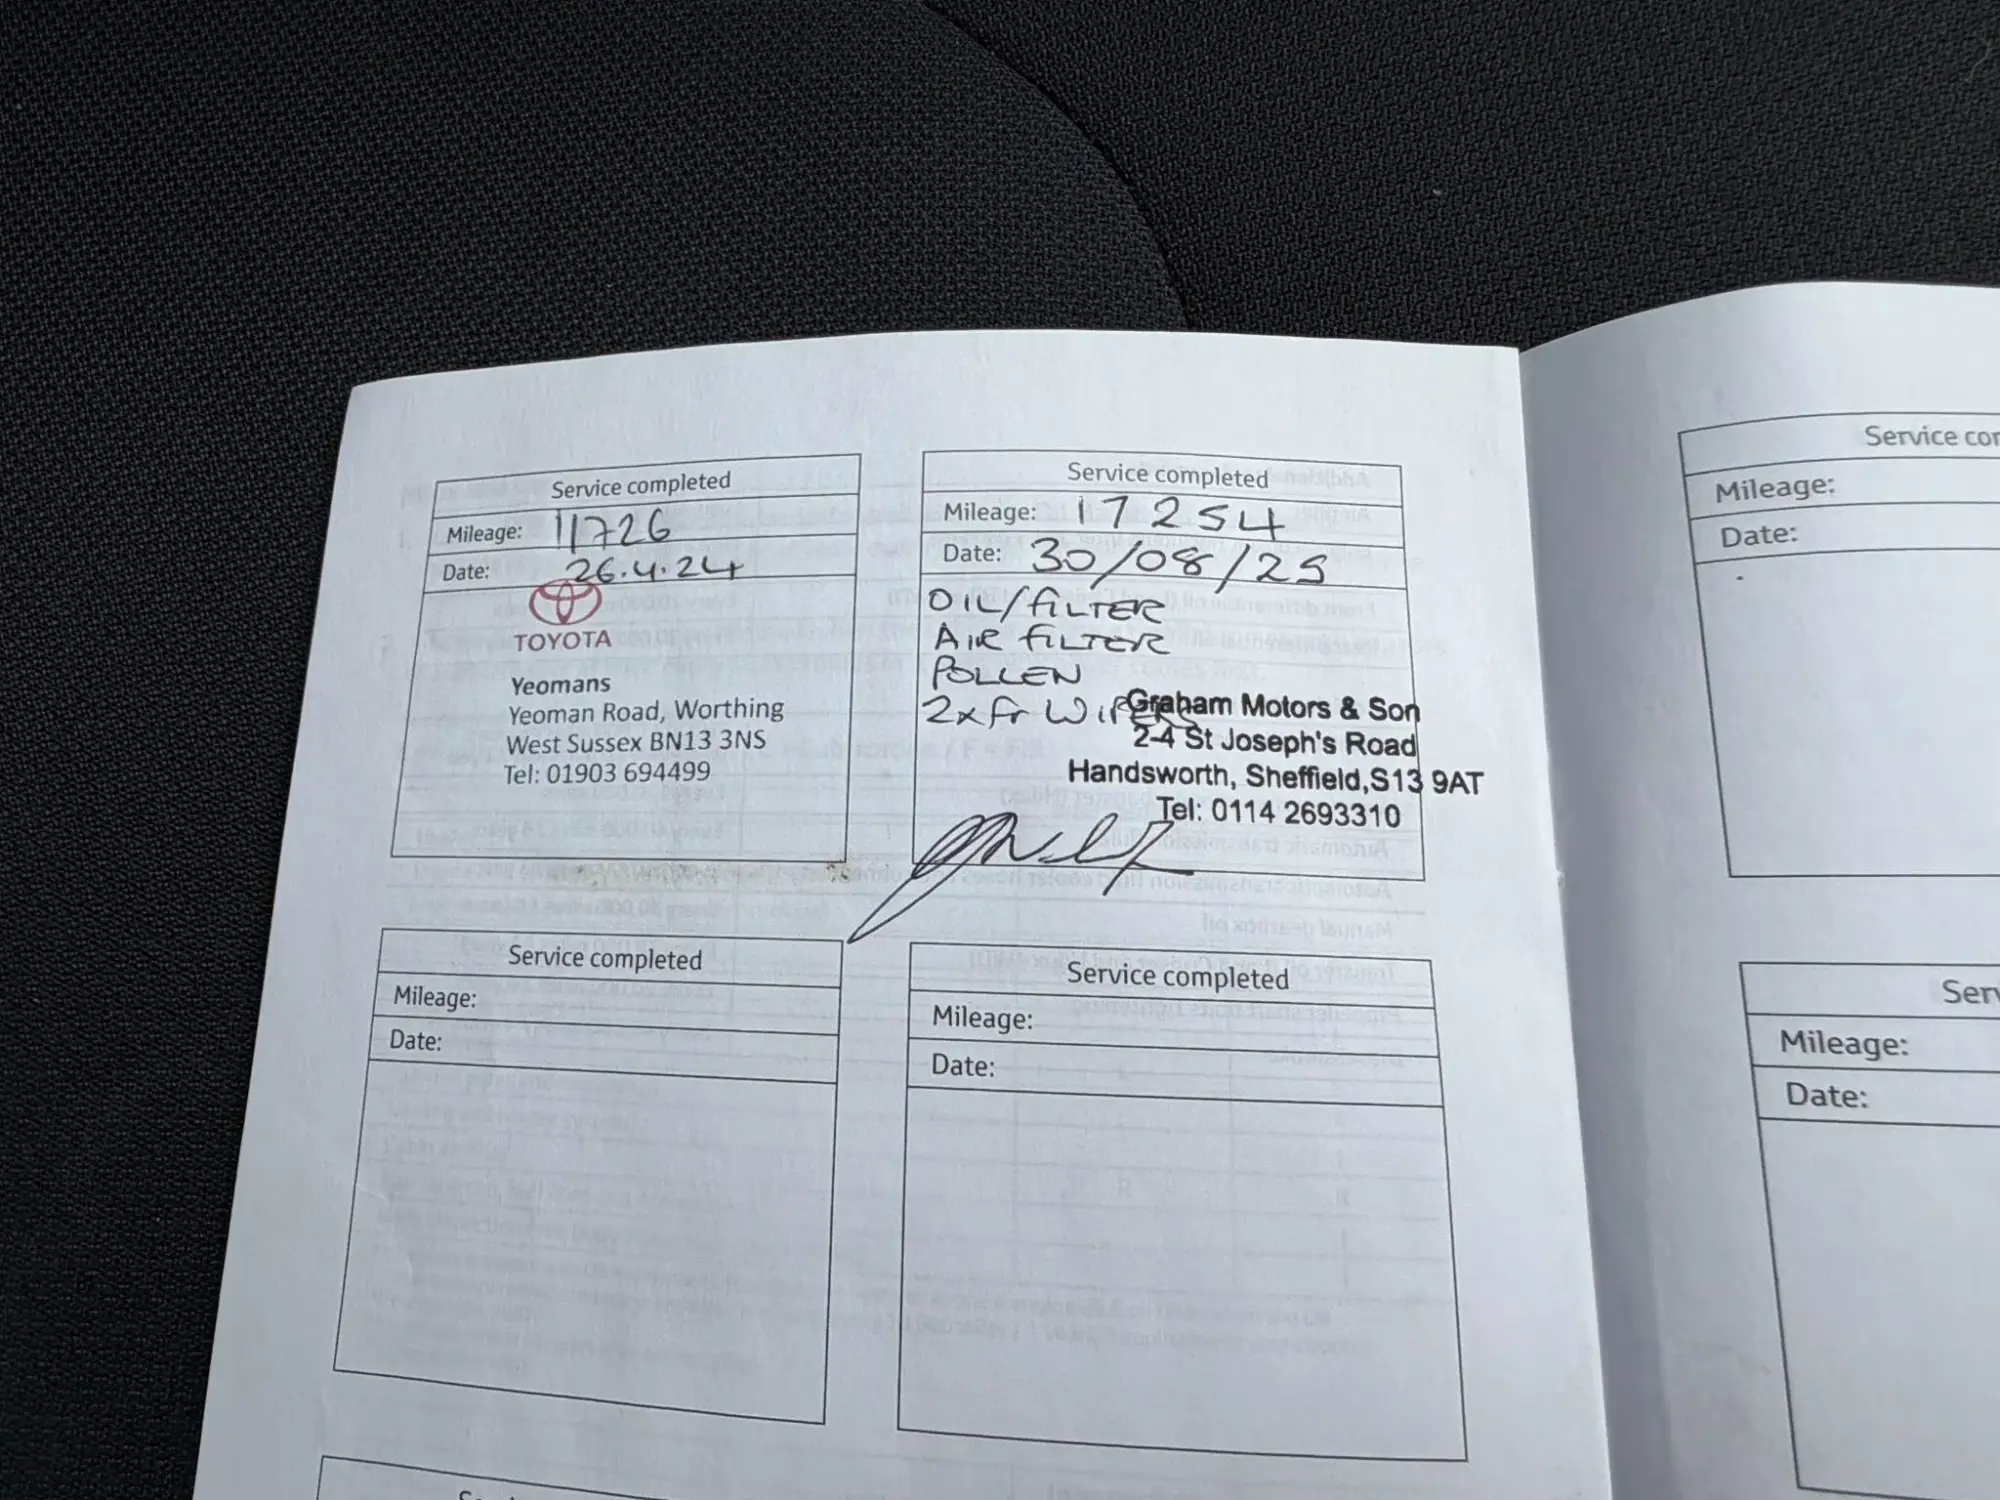 Service completed
Mileage: 11726
Date: 26.4.24
TOYOTA
Yeomans
Yeoman Road, Worthing
West Sussex BN13 3NS
Tel: 01903 694499
Service completed
Mileage: 17254
Date: 30/08/25
OIL/FILTER
AIR FILTER
POLLEN
2x Fr WIPERS
Graham Motors & Son
2-4 St Joseph's Road
Handsworth, Sheffield,S13 9AT
Tel: 0114 2693310
Service completed
Mileage:
Date:
Service completed
Mileage:
Date:
Service
Mileage:
Date:
Mileage:
Date: